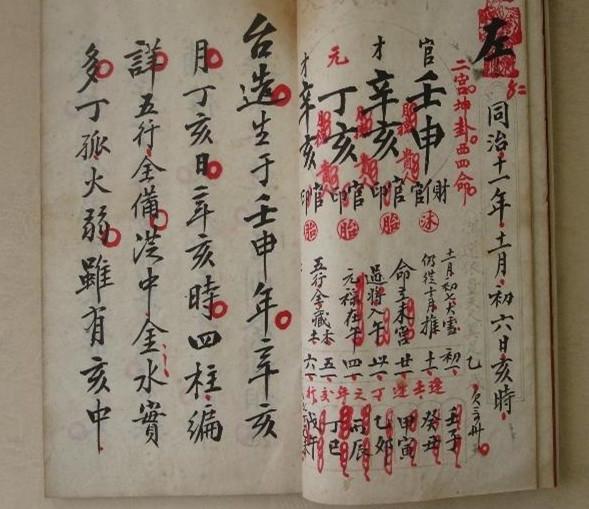 左
同治十一年十一月初六日亥時
二宮坤卦西四命
官 壬申 財官印
才 辛亥 官印
元 丁亥 官印
才 辛亥 官印
沐
胎
胎
胎
十一月初七大雪
仍從十月推
命立未宮
過將入午
元祿在午
五行全藏木
初一 壬子
十一 癸丑
廿一 甲寅
卅一 乙卯
四一 丙辰
五一 丁巳
六一 戊午
台造生于壬申年辛亥
月丁亥日辛亥時四柱編
詳五行全備洪中金水實
多丁孤火弱雖有亥中